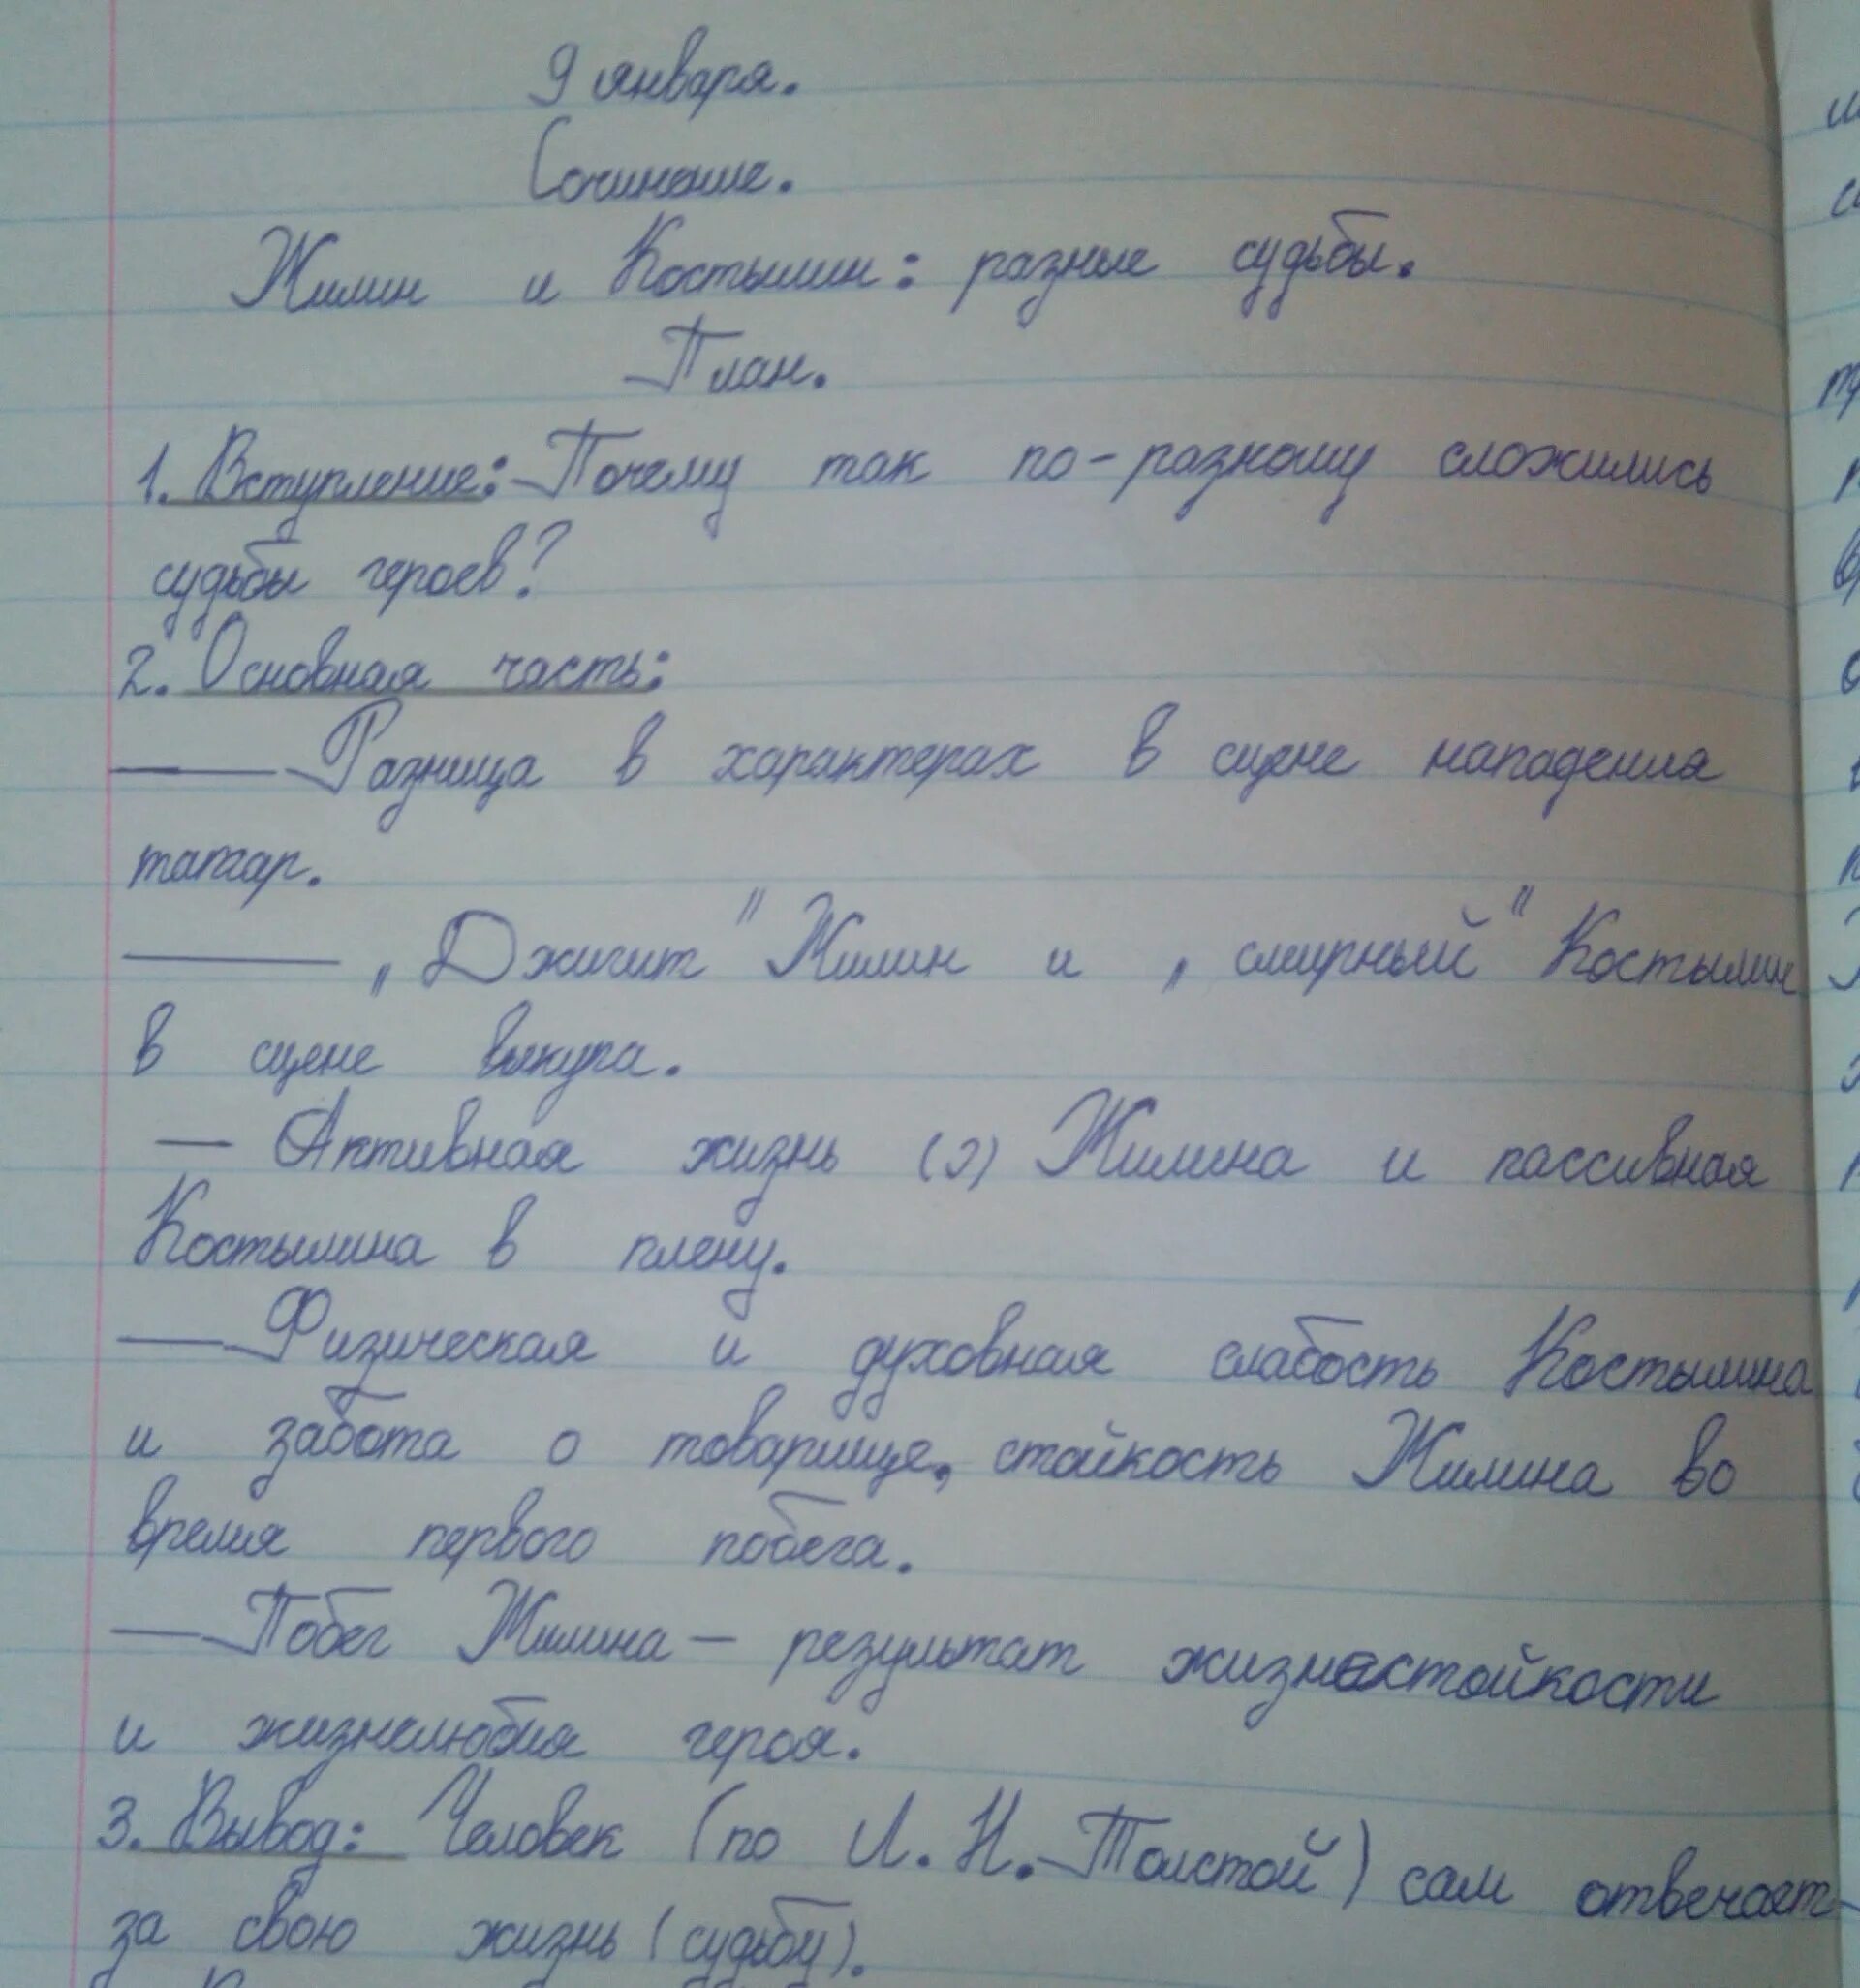 9 января.
Сочинение.
Жилин и Костылин: разные судьбы.
План.
1. Вступление: Почему так по-разному сложились
судьбы героев?
2. Основная часть:
— Разница в характерах в сцене нападения
татар.
— „Джигит" Жилин и „смирный" Костылин
в сцене выкупа.
— Активная жизнь (э) Жилина и пассивная
Костылина в плену.
— Физическая и духовная слабость Костылина
и забота о товарище, стойкость Жилина во
время первого побега.
— Побег Жилина — результат жизнестойкости
и жизнелюбия героя.
3. Вывод: Человек (по Л. Н. Толстой) сам отвечает
за свою жизнь (судьбу).